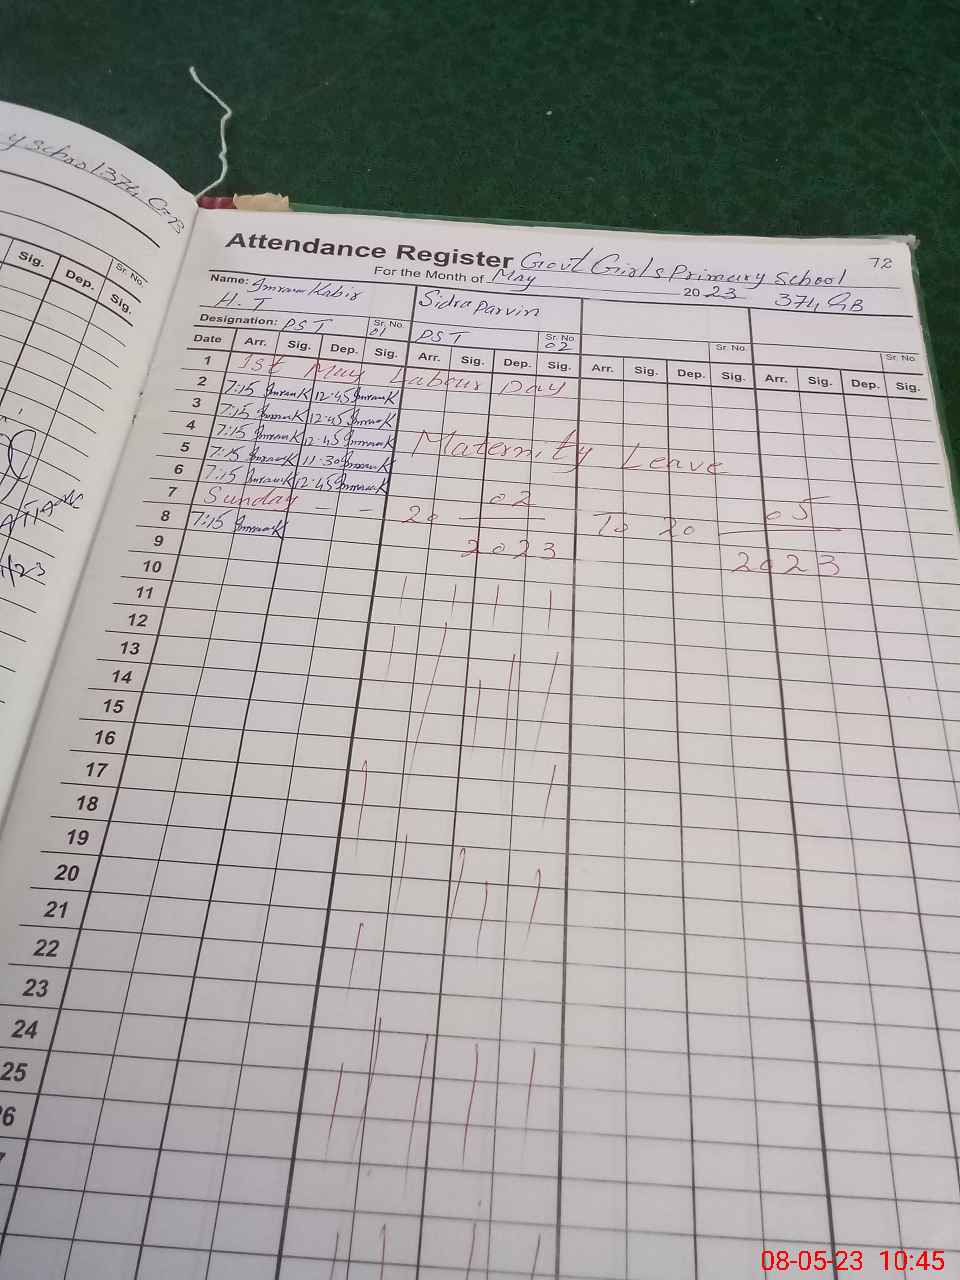 y school 374 GB
Sig. Dep. Sr. No. Sig.
Attendance Register Govt Girls Primary School 72
For the Month of May 2023 374 GB
Name: Imran Kabir Sidra Parvin
H. T
Designation: PST Sr. No. 01 PST Sr. No. 02 Sr. No. Sr. No.
Date Arr. Sig. Dep. Sig. Arr. Sig. Dep. Sig. Arr. Sig. Dep. Sig. Arr. Sig. Dep. Sig.
1 1st May Labour Day
2 7:15 ImranK 12:45 ImranK
3 7:15 ImranK 12:45 ImranK
4 7:15 ImranK 12:45 ImranK Maternity Leave
5 7:15 ImranK 11:30 ImranK
6 7:15 ImranK 12:45 ImranK
7 Sunday - - 20 02 2023 To 20 05 2023
8 7:15 ImranK
9
10
11
12
13
14
15
16
17
18
19
20
21
22
23
24
25
26
7
08-05-23 10:45